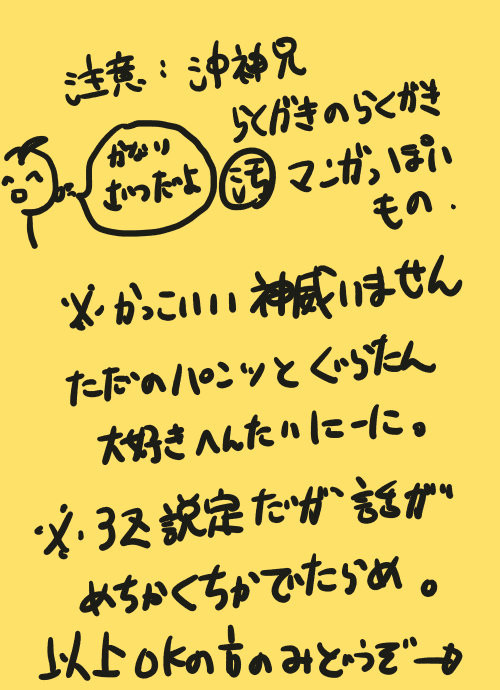 注意：沖神兄
らくがきのらくがき
かなり
ざつだよ
マンガっぽい
もの.
※かっこいい神威いません
ただのパンツとぐらたん
大好きへんたいにーに。
※3Z設定だが話が
めちゃくちゃでたらめ。
以上OKの方のみどうぞ→